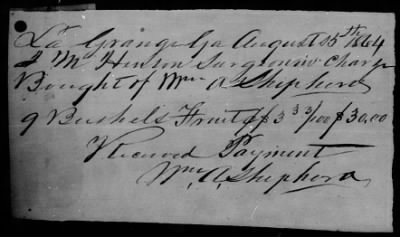 La Grange Ga August 15th 1864
Surgeon in Charge
Bought of Wm A Shepherd
9 Bushels Fruit @ $3 33/100 $30.00
Received Payment
Wm. A. Shepherd